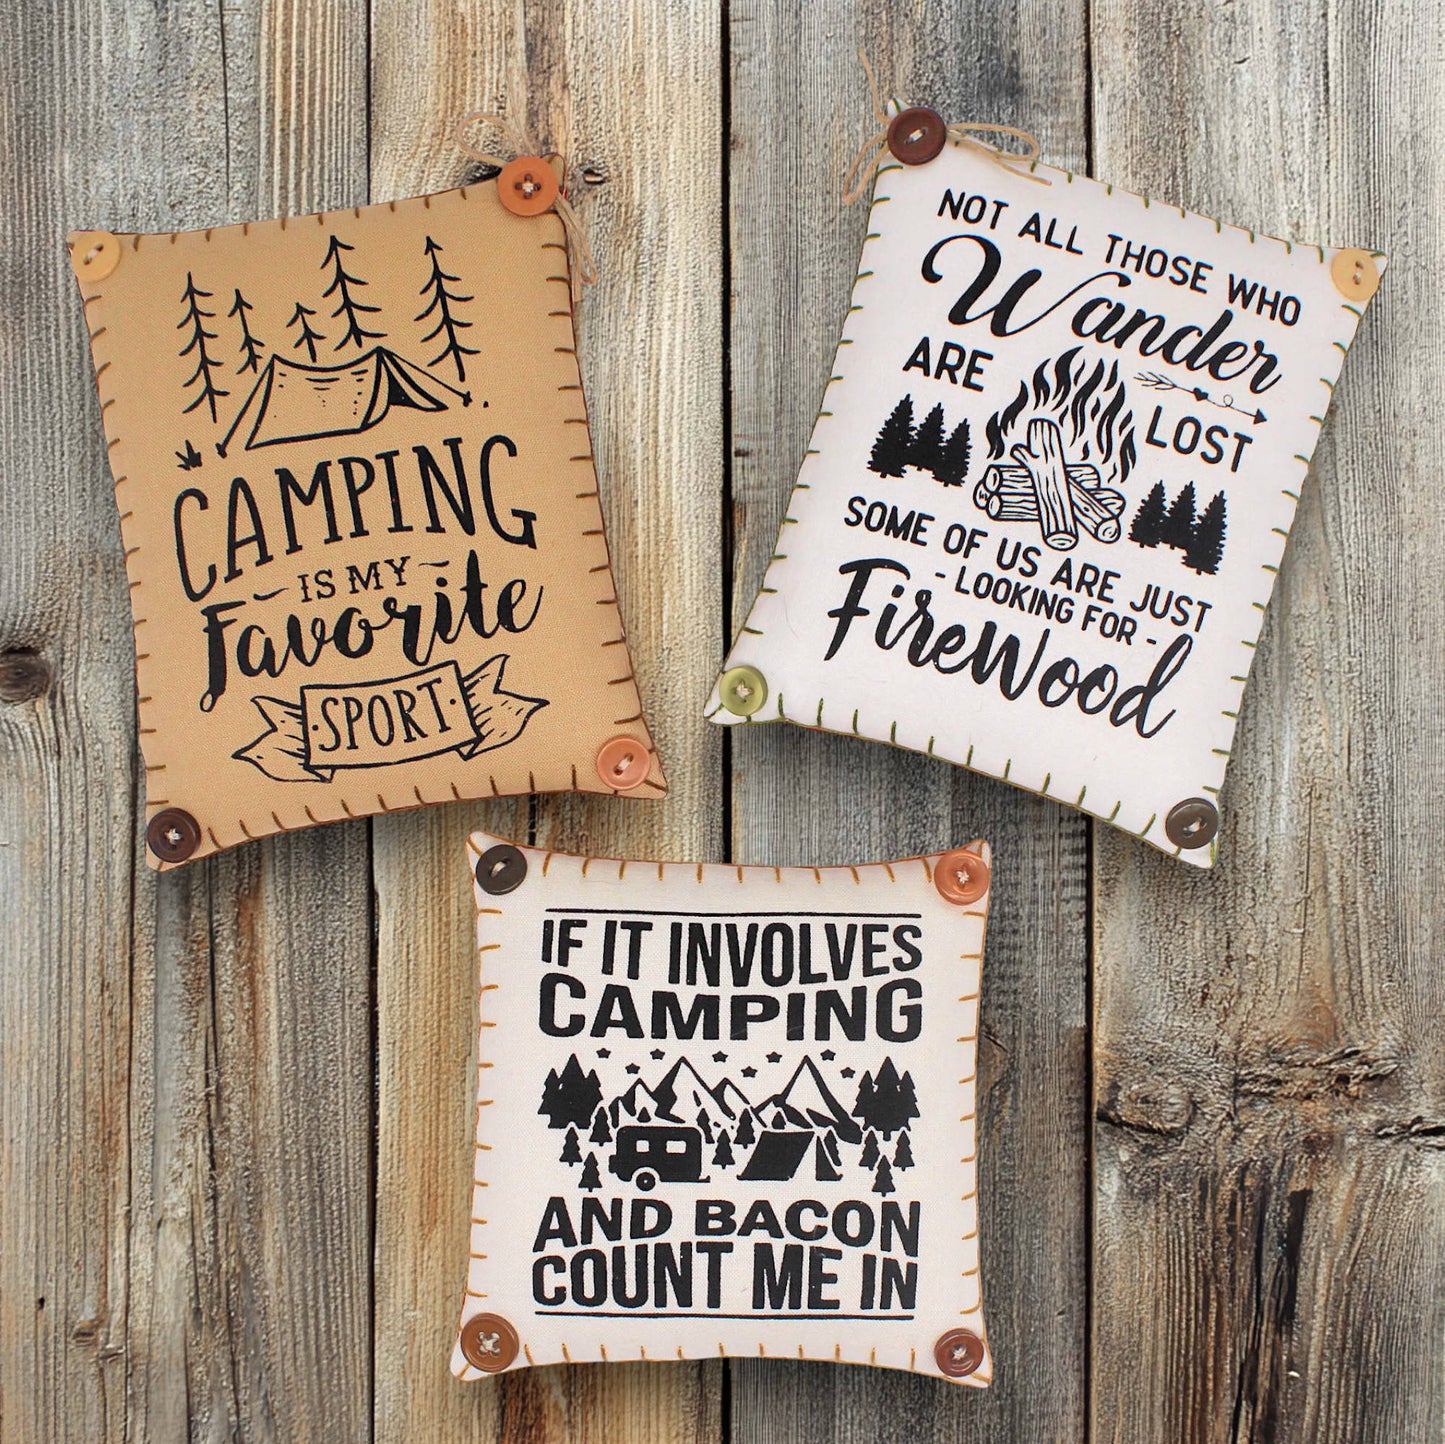 CAMPING
IS MY
Favorite
SPORT
NOT ALL THOSE WHO
Wander
ARE
LOST
SOME OF US ARE JUST
- LOOKING FOR -
FireWood
IF IT INVOLVES
CAMPING
AND BACON
COUNT ME IN